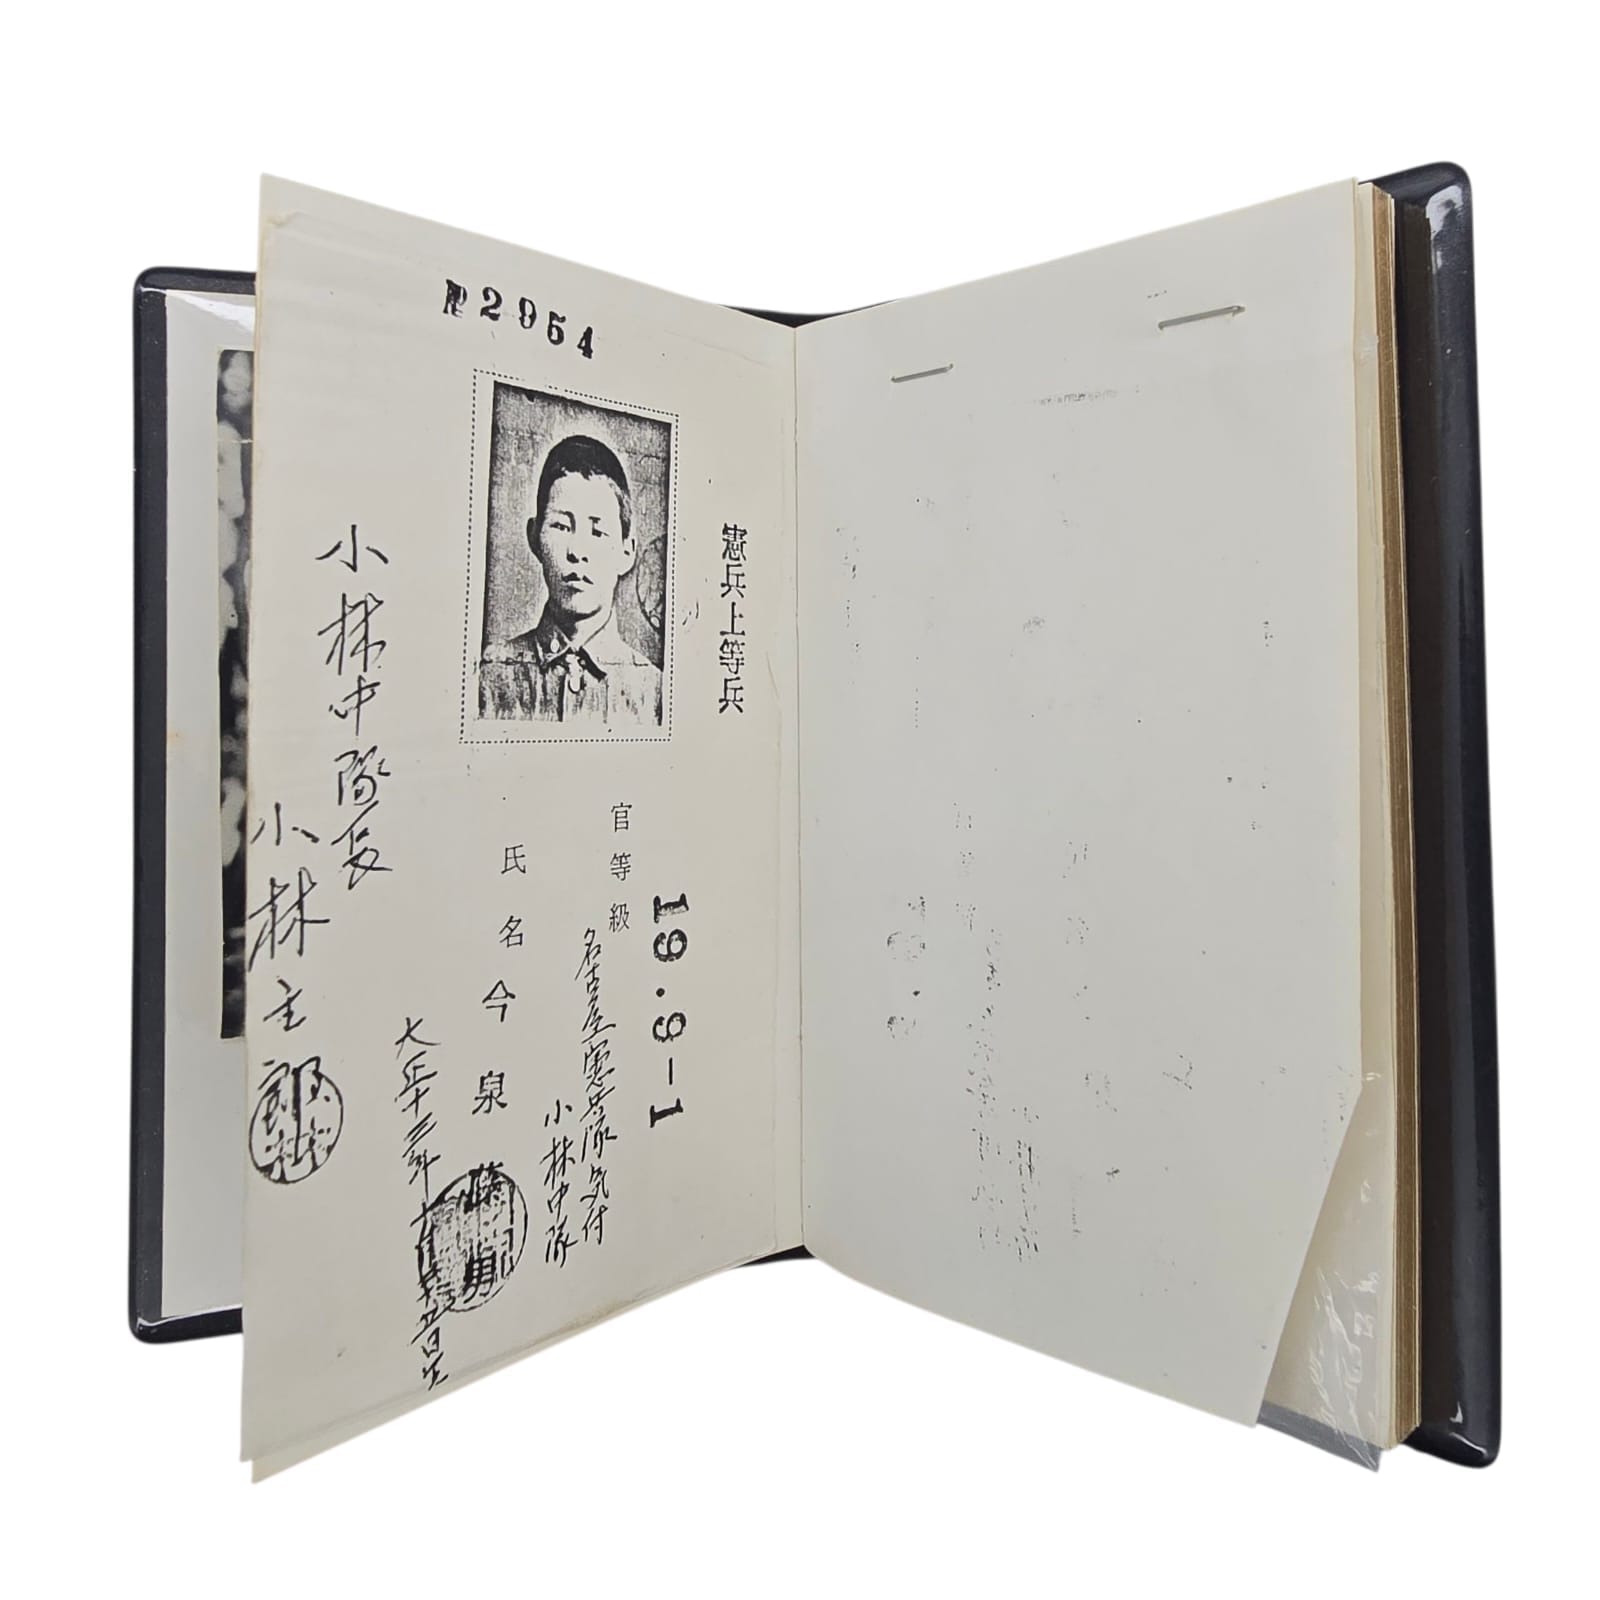 №2954
憲兵上等兵
19.9-1
官等級
名古屋憲兵隊気付
小林中隊
氏名 今泉
大正十三年
日生
小林中隊長
小林